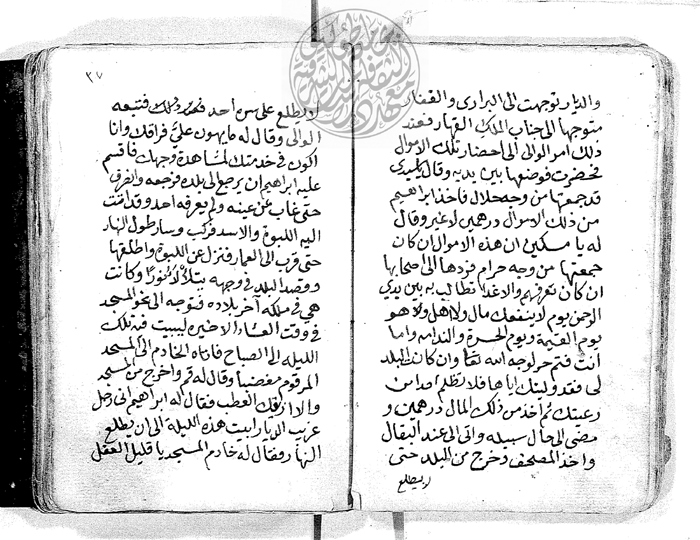 والديار توجهت الى البرارى والقفار
متوجها الى جناب الملك القهار فعند
ذلك امر الوالى الى احضار تلك الاموال
فحضرت فوضعها بين يديه وقال يا سيدى
قد جمعها من وجه حلال فاخذ ابراهيم
من ذلك الاموال درهمين لا غير وقال
له يا مسكين ان هذه الاموال ان كان
جمعتها من وجه حرام فردها الى اصحابها
ان كان تعرفهم والا غدا تطالب به بين يدي
الرحمن يوم لا ينفعك مال ولا اهل ولا هو
يوم القيمة ويوم الحسرة والندامه واما
انت فتم حر لوجه الله تعا وان كان البلد
لى فقد وليتك اياها فلا تظلم احدا من
رعيتك ثم اخذ من ذلك المال درهمين و
مضى الى حال سبيله واتى الى عند البقال
واخذ المصحف وخرج من البلد حتى
لا يطلع
٣٧
لا يطلع على سره احد فتبعه
الوالى وقال له ما يهون عليَّ فراقك وانا
اكون فى خدمتك لمشاهدة وجهك فاقسم
عليه ابراهيم ان يرجع الى بلده فرجعه وافترق
حتى غاب عن عينه ولم يعرفه احد وقد اتت
اليه اللبوة والاسد فركب وسار طول النهار
حتى قرب الى العمار فنزل عن اللبوة واطلقها
وقصد البلد فى وجهه يتلألأ نورًا وكانت
هى فى مملكة آخر بلاده فتوجه الى نحو المسجد
فى وقت العشاء الاخير ليبيت فيه تلك
الليله الى الصباح فاتاه الخادم الى المسجد
المرقوم مغضبا وقال له قم واخرج من المسجد
والا ازقك العطب فقال له ابراهيم انى رجل
غريب الديار ابيت هذه الليله الى ان يطلع
النهار فقال له خادم المسجد يا قليل العقل